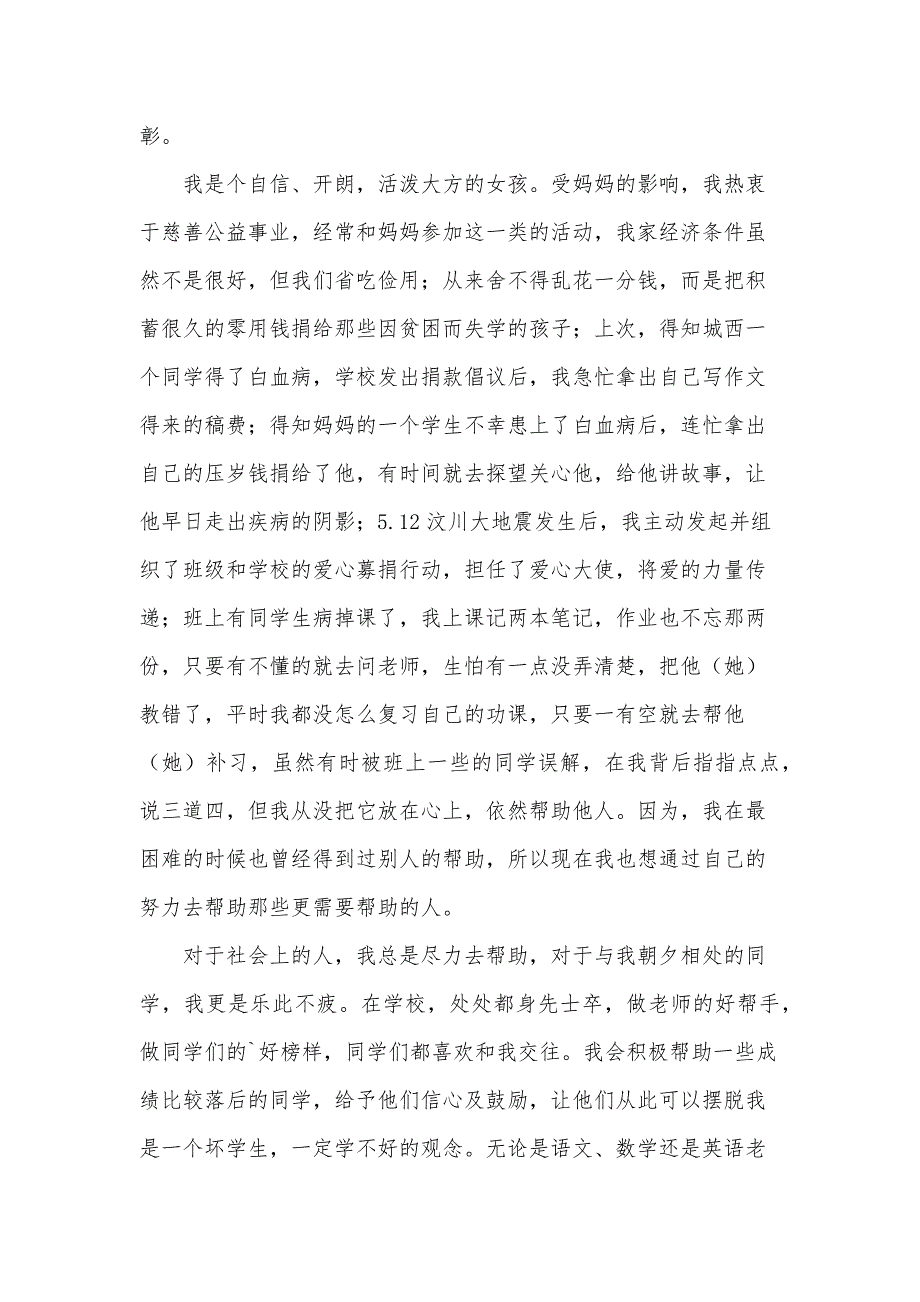 彰。
我是个自信、开朗，活泼大方的女孩。受妈妈的影响，我热衷
于慈善公益事业，经常和妈妈参加这一类的活动，我家经济条件虽
然不是很好，但我们省吃俭用；从来舍不得乱花一分钱，而是把积
蓄很久的零用钱捐给那些因贫困而失学的孩子；上次，得知城西一
个同学得了白血病，学校发出捐款倡议后，我急忙拿出自己写作文
得来的稿费；得知妈妈的一个学生不幸患上了白血病后，连忙拿出
自己的压岁钱捐给了他，有时间就去探望关心他，给他讲故事，让
他早日走出疾病的阴影；5.12汶川大地震发生后，我主动发起并组
织了班级和学校的爱心募捐行动，担任了爱心大使，将爱的力量传
递；班上有同学生病掉课了，我上课记两本笔记，作业也不忘那两
份，只要有不懂的就去问老师，生怕有一点没弄清楚，把他（她）
教错了，平时我都没怎么复习自己的功课，只要一有空就去帮他
（她）补习，虽然有时被班上一些的同学误解，在我背后指指点点，
说三道四，但我从没把它放在心上，依然帮助他人。因为，我在最
困难的时候也曾经得到过别人的帮助，所以现在我也想通过自己的
努力去帮助那些更需要帮助的人。
对于社会上的人，我总是尽力去帮助，对于与我朝夕相处的同
学，我更是乐此不疲。在学校，处处都身先士卒，做老师的好帮手，
做同学们的`好榜样，同学们都喜欢和我交往。我会积极帮助一些成
绩比较落后的同学，给予他们信心及鼓励，让他们从此可以摆脱我
是一个坏学生，一定学不好的观念。无论是语文、数学还是英语老